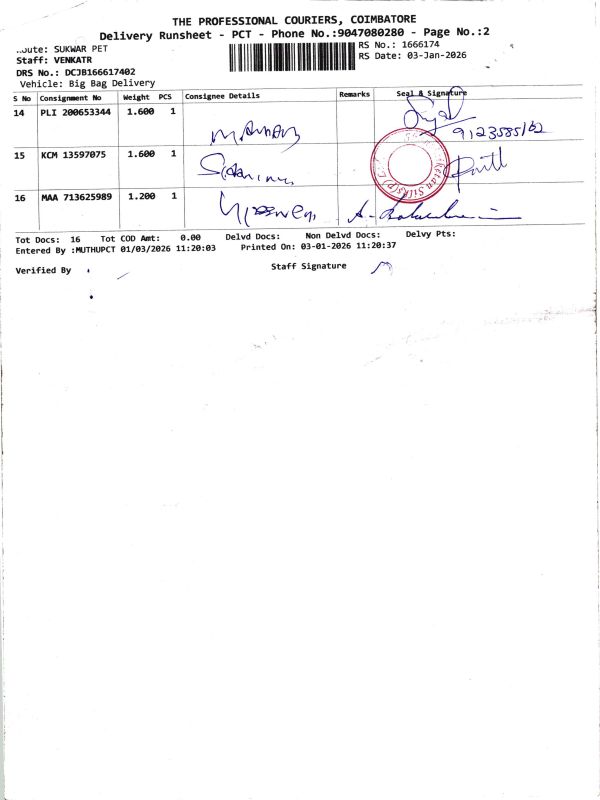 THE PROFESSIONAL COURIERS, COIMBATORE
Delivery Runsheet - PCT - Phone No.:9047080280 - Page No.:2
oute: SUKWAR PET
RS No.: 1666174
Staff: VENKATR
RS Date: 03-Jan-2026
DRS No.: DCJB166617402
Vehicle: Big Bag Delivery
S No Consignment No Weight PCS Consignee Details Remarks Seal & Signature
14 PLI 200653344 1.600 1
15 KCM 13597075 1.600 1
16 MAA 713625989 1.200 1
Tot Docs: 16 Tot COD Amt: 0.00 Delvd Docs: Non Delvd Docs: Delvy Pts:
Entered By :MUTHUPCT 01/03/2026 11:20:03 Printed On: 03-01-2026 11:20:37
Verified By Staff Signature